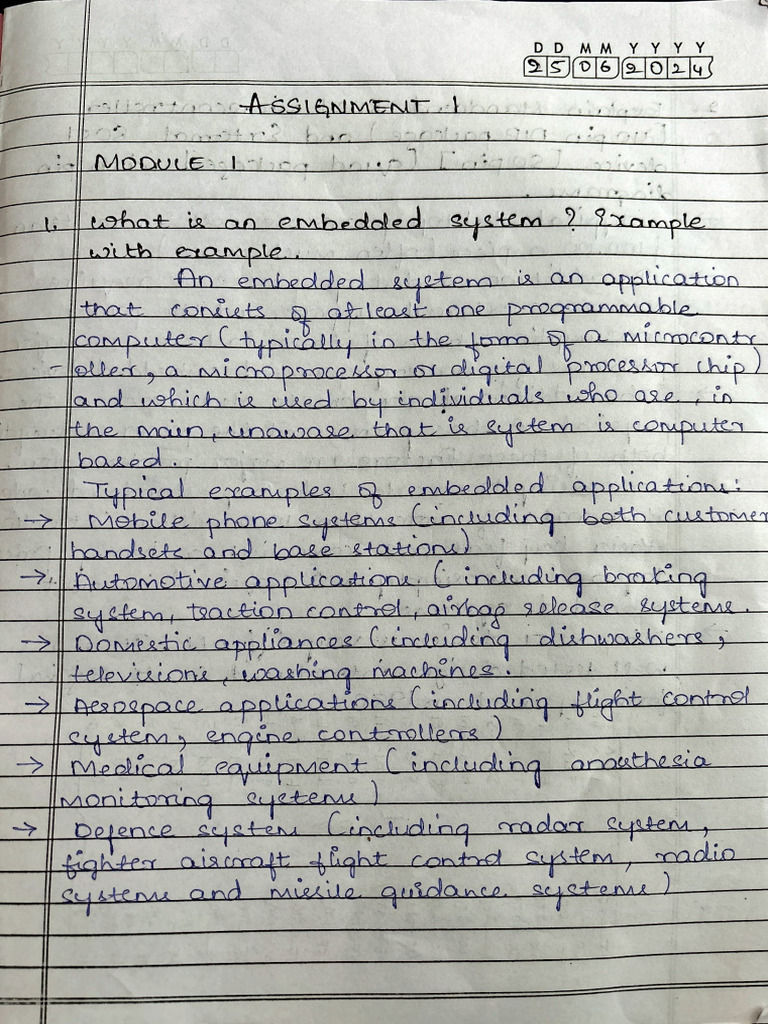 D D M M Y Y Y Y
25 06 2024
ASSIGNMENT 1
MODULE 1
1. What is an embedded system ? Example
with example.
An embedded system is an application
that consists of atleast one programmable
computer (typically in the form of a microcontr
- oller, a microprocessor or digital processor chip)
and which is used by individuals who are, in
the main, unaware that is system is computer
based.
Typical examples of embedded applications:
→ Mobile phone systems (including both customer
handsets and base stations)
→ Automotive applications (including braking
system, traction control, airbag release systems.
→ Domestic appliances (including dishwashers,
televisions, washing machines.
→ Aerospace applications (including flight control
system, engine controllers)
→ Medical equipment (including anasthesia
monitoring systems)
→ Defence system (including radar system,
fighter aircraft flight control system, radio
systems and missile guidance systems)